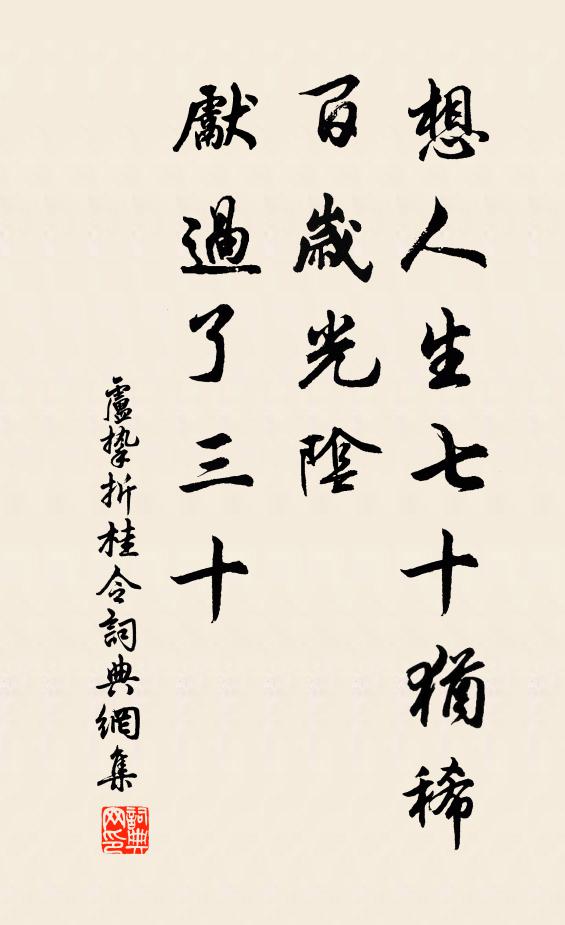 想人生七十猶稀
百歲光陰
獻過了三十
盧摯折桂令詞典網集
詞典网印